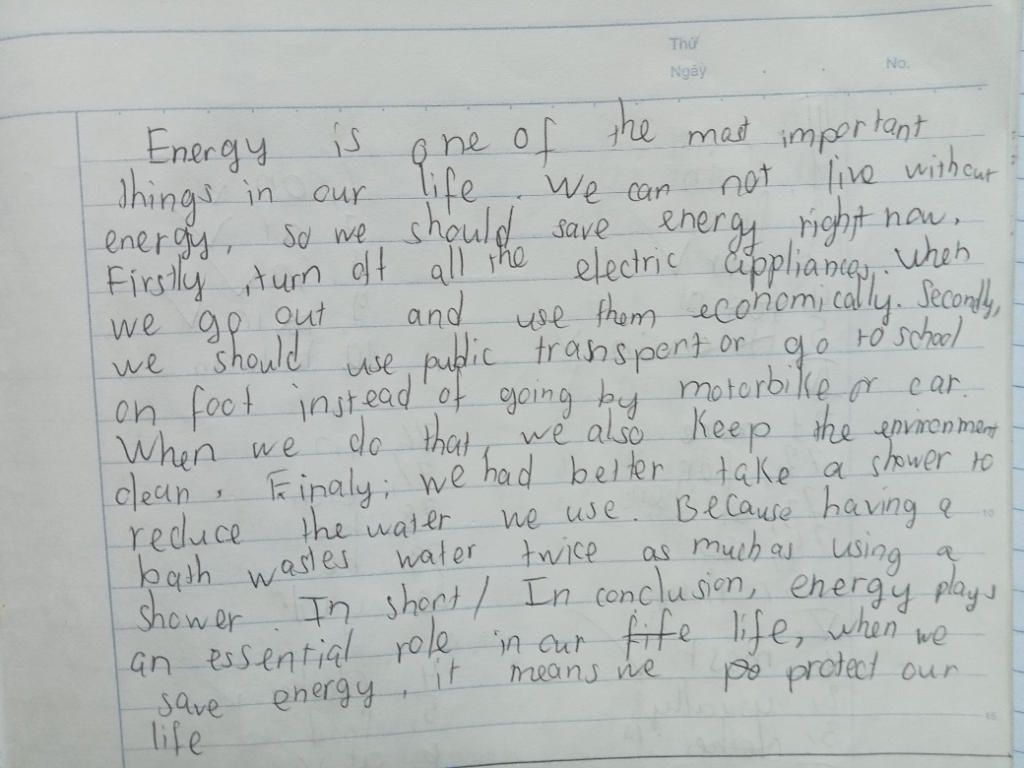 Thứ
Ngày
No.
Energy is one of the most important
things in our life. We can not live without
energy, so we should save energy right now.
Firstly, turn off all the electric appliances. When
we go out and use them economically. Secondly,
we should use public transport or go to school
on foot instead of going by motorbike or car.
When we do that, we also keep the environment
clean. Finaly, we had better take a shower to
reduce the water we use. Because having a
bath wastes water twice as much as using a
shower. In short / In conclusion, energy plays
an essential role in our life, when we
save energy, it means we protect our
life